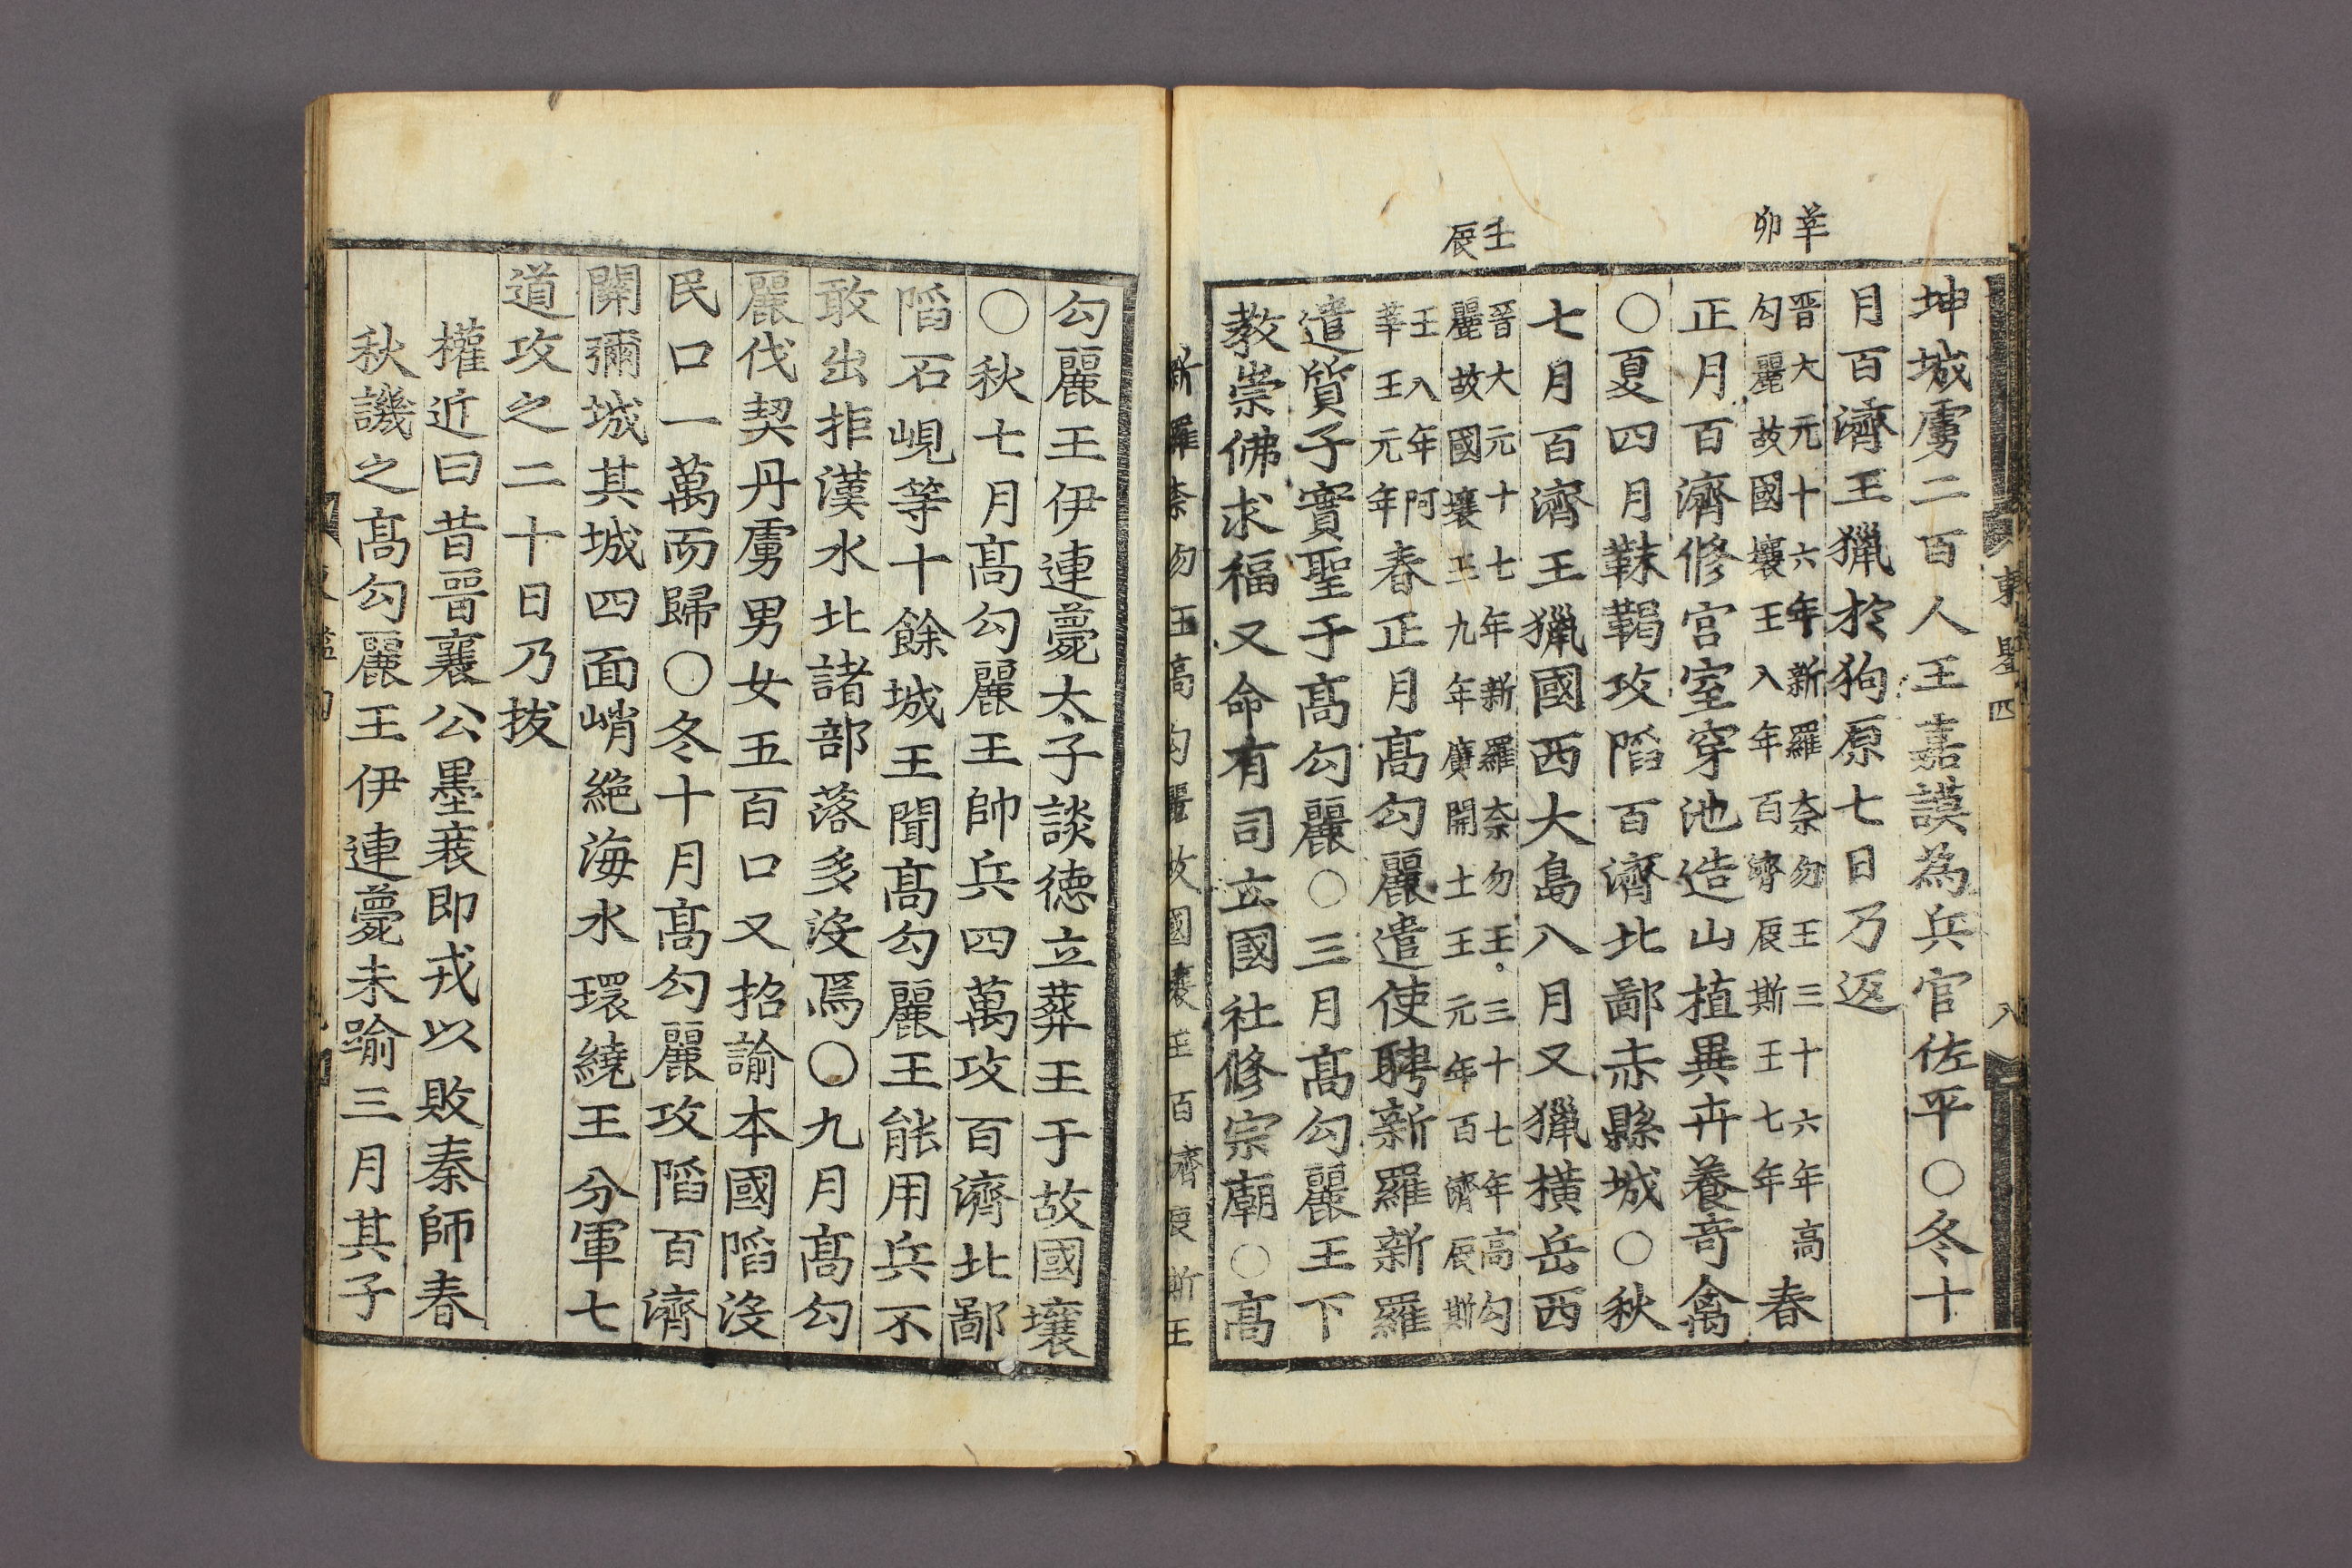 辛卯
壬辰
坤城虜二百人王嘉謨為兵官佐平○冬十
月百濟王獵於狗原七日乃返
晋大元十六年新羅奈勿王三十六年高
勾麗故國壤王八年百濟辰斯王七年
春
正月百濟修宮室穿池造山植異卉養奇禽
○夏四月靺鞨攻陷百濟北鄙赤縣城○秋
七月百濟王獵國西大島八月又獵橫岳西
晉大元十七年新羅奈勿王三十七年高勾
麗故國壤王九年廣開土王元年百濟辰斯
王八年阿
莘王元年
春正月高勾麗遣使聘新羅新羅
遣質子實聖于高勾麗○三月高勾麗王下
教崇佛求福又命有司立國社修宗廟○高
東㫷四
八
新羅奈勿王高勾麗故國壤王百濟辰斯王
勾麗王伊連薨太子談德立葬王于故國壤
○秋七月高勾麗王帥兵四萬攻百濟北鄙
陷石峴等十餘城王聞高勾麗王能用兵不
敢出拒漢水北諸部落多沒焉○九月高勾
麗伐契丹虜男女五百口又招諭本國陷沒
民口一萬而歸○冬十月高勾麗攻陷百濟
關彌城其城四面峭絕海水環繞王分軍七
道攻之二十日乃拔
權近曰昔晉襄公墨衰即戎以敗秦師春
秋譏之高勾麗王伊連薨未踰三月其子